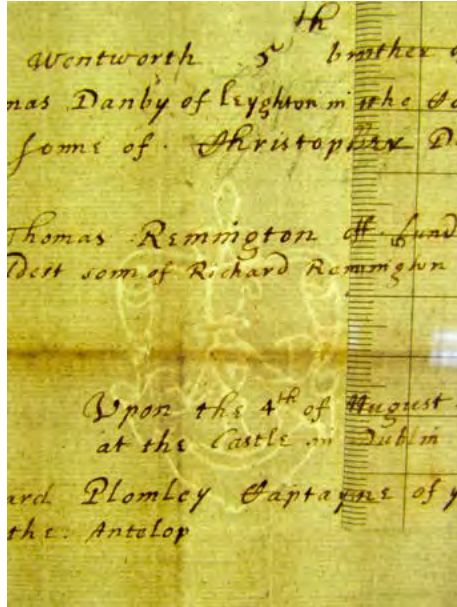 th
Wentworth 5 brother
mas Danby of leyghton in the
sonne of Christopher D
Thomas Remington off Lund
ldest sonn of Richard Remmington
Upon the 4th of August
at the Castle in Dublin
ard Plomley Captayne of y
the Antelop